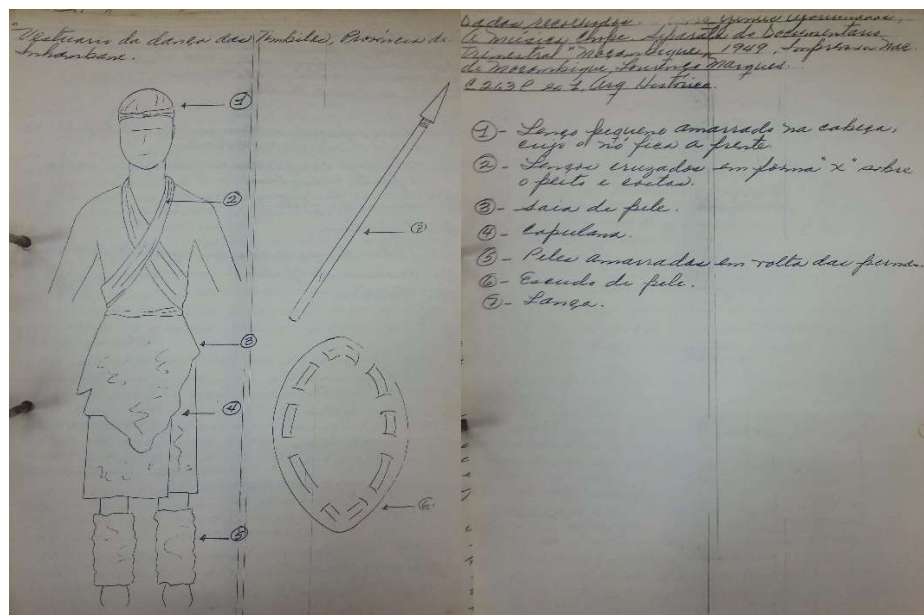 "Vestuario da dança das Timbilas, Província de
Inhambane.
1
2
3
4
5
6
7
Dados recolhidos
A música Chope. Separata do Documentario
Trimestral "Moçambique", 1949, Imprensa Nac.
de Moçambique, Lourenço Marques.
C 263 P ex 1, Arq Historico.
1 - Lenço pequeno amarrado na cabeça,
cujo o nó fica a frente.
2 - Lenços cruzados em forma "x" sobre
o peito e costas.
3 - Saia de pele.
4 - Capulana.
5 - Peles amarradas em volta das pernas.
6 - Escudo de pele.
7 - Lança.